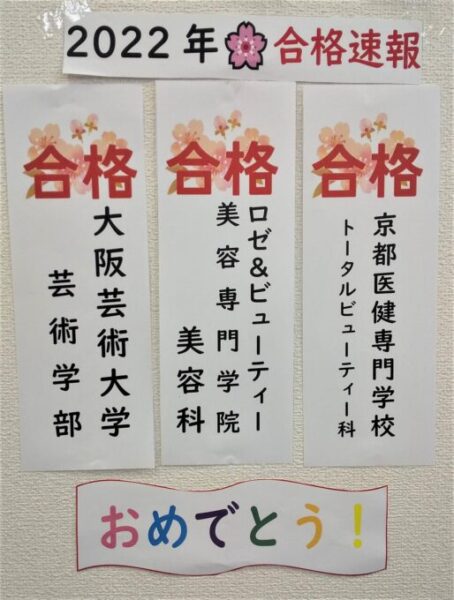 2022年 合格速報
合格
京都医健専門学校
トータルビューティー科
合格
ロゼ&ビューティー
美容専門学院
美容科
合格
大阪芸術大学
芸術学部
おめでとう！